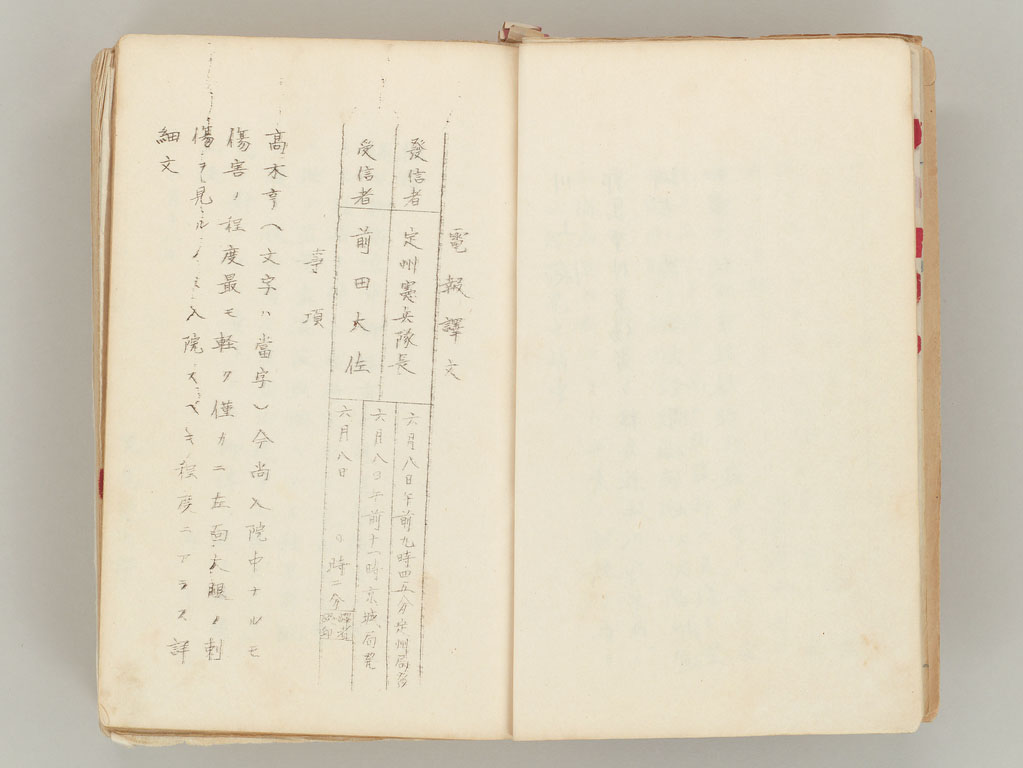 電報譯文
發信者 定州憲兵隊長 六月八日午前九時四五分定州局發
受信者 前田大佐 六月八日午前十一時京城局
六月八日 時二分
事項
高木亨(文字ハ當字)今尚入院中ナルモ
傷害ノ程度最モ軽ク僅カニ左面大腿ノ刺
傷ヲ見ル入院スヘキ程度ニアラス詳
細文